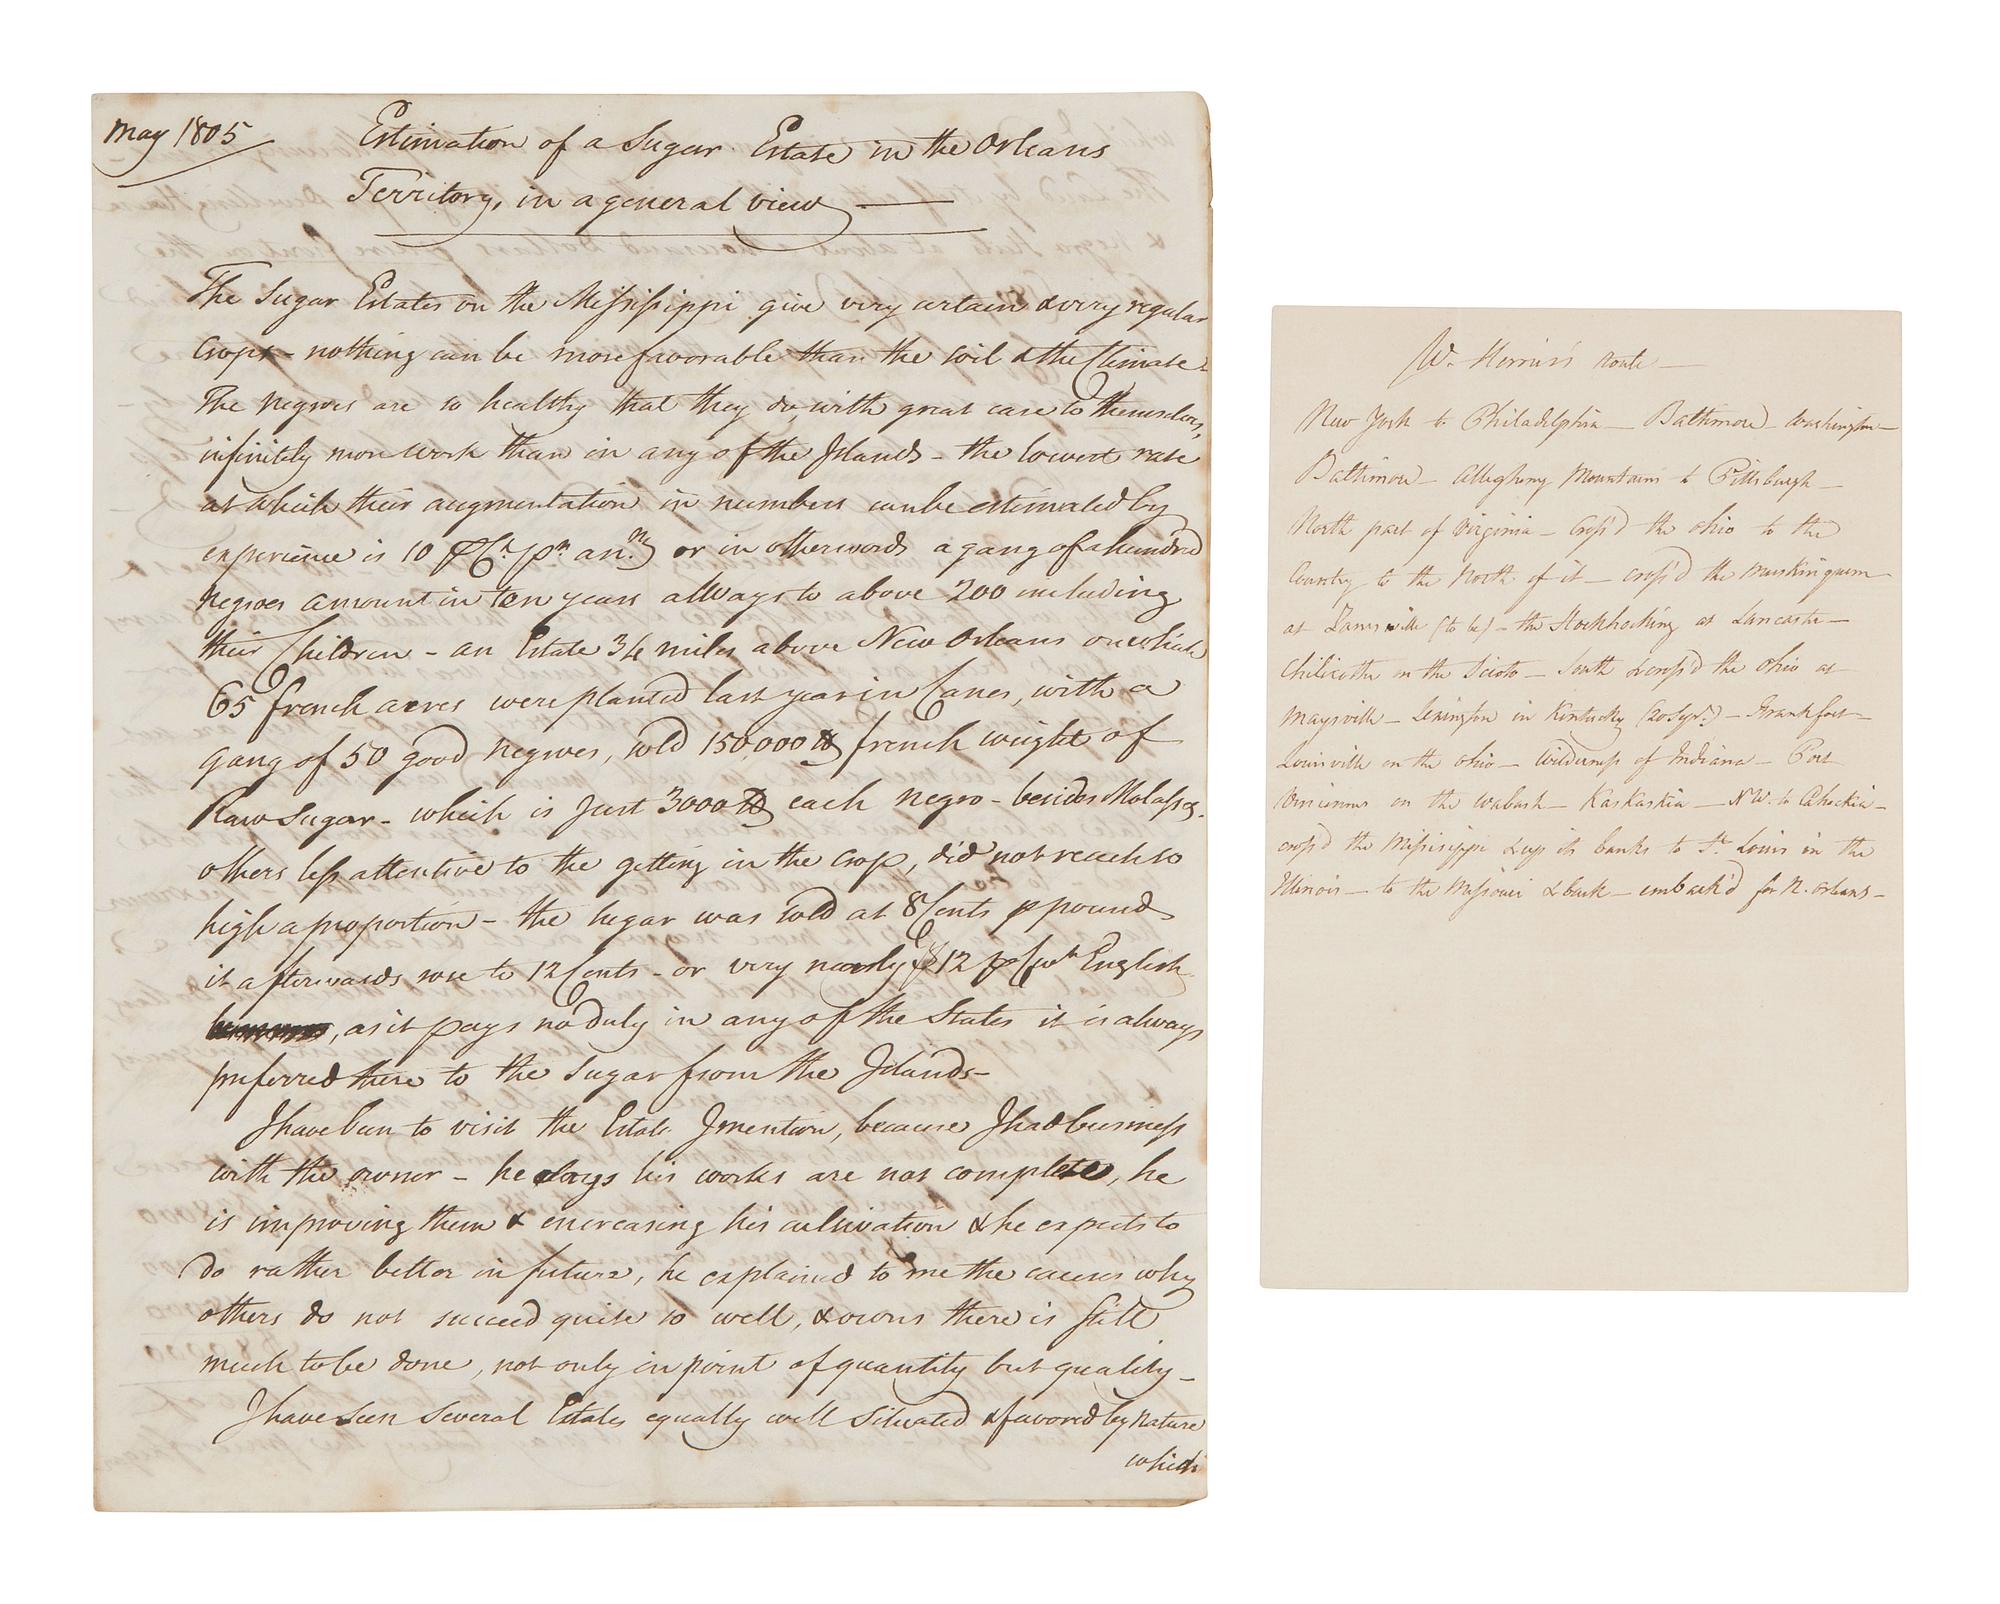 May 1805
Estimation of a Sugar Estate in the Orleans
Territory, in a general view —
The Sugar Estates on the Mississippi give very certain & very regular
Crops - nothing can be more favorable than the soil & the Climate -
The Negroes are so healthy that they do, with great ease to themselves,
infinitely more work than in any of the Islands - the lowest rate
at which their augmentation in numbers can be estimated by
experience is 10 p Ct. pr. ann. or in other words a gang of a hundred
Negroes amount in ten years allways to above 200 including
their Children - an Estate 34 miles above New Orleans on which
65 french acres were planted last year in Canes, with a
gang of 50 good Negroes, sold 150,000 lb french weight of
Raw Sugar - which is just 3000 lb each negro - besides Molasses.
others less attentive to the getting in the crop, did not reach so
high a proportion - the sugar was sold at 8 Cents p pound
it afterwards rose to 12 Cents - or very nearly $12 p Cwt English
, as it pays no duty in any of the States it is always
preferred there to the Sugar from the Islands -
I have been to visit the Estate I mention, because I had business
with the owner - he says his works are not complete, he
is improving them & encreasing his cultivation & he expects to
do rather better in future, he explained to me the causes why
others do not succeed quite so well, & owns there is still
much to be done, not only in point of quantity but quality -
I have seen several Estates equally well situated & favored by nature
which
W. Merrin's route —
New York to Philadelphia — Baltimore — Washington —
Baltimore — Alleghany Mountains to Pittsburgh —
North part of Virginia — Cross'd the Ohio to the
Country to the North of it — cross'd the Muskinguem
at Zanesville (to be) — the Hockhocking at Lancaster —
Chilicothe on the Scioto — South & cross'd the Ohio at
Maysville — Lexington in Kentucky — Frankfort —
Louisville on the Ohio — Wilderness of Indiana — Port
Vincennes on the Wabash — Kaskaskia — N W. to Cahokia —
cross'd the Mississippi & up its banks to St. Louis in the
Illinois — to the Missouri & back — embark'd for N. Orleans —